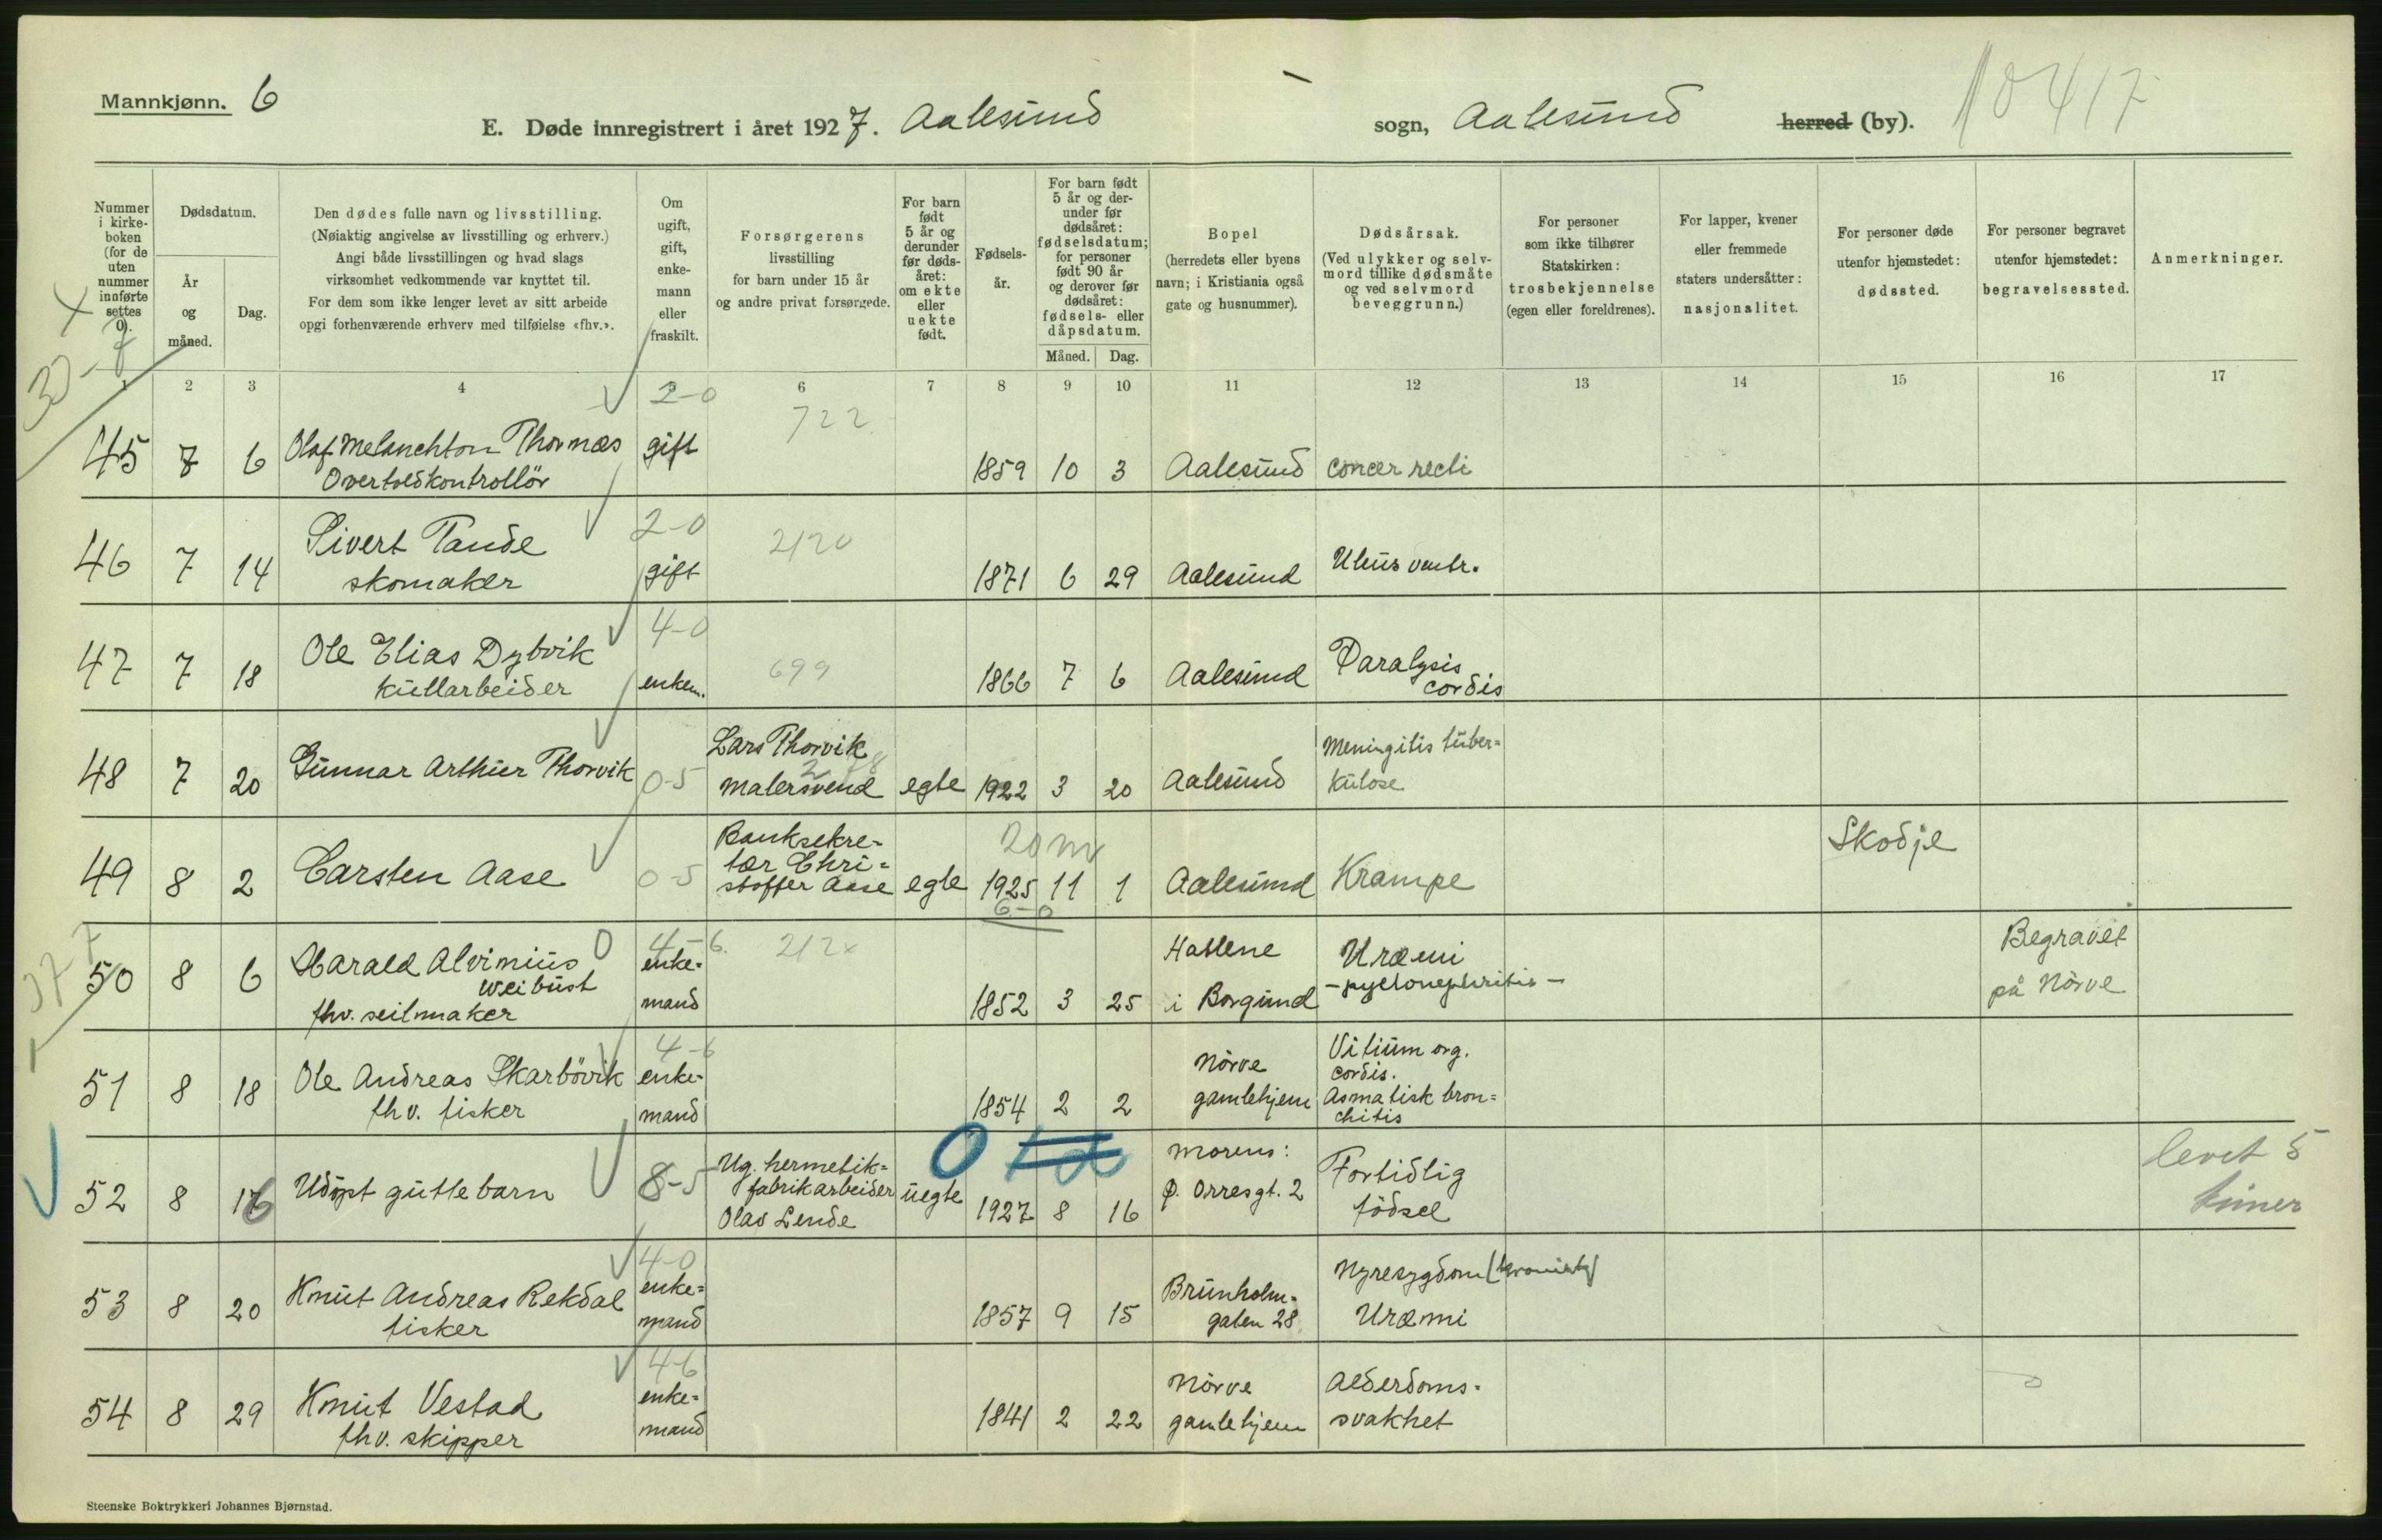 Mannkjønn. 6
E. Døde innregistrert i året 1927. Aalesund sogn, Aalesund herred (by). 10417
Nummer i kirkeboken (for de uten nummer innførte settes 0).
Dødsdatum.
År og måned.
Dag.
Den dødes fulle navn og livsstilling.
(Nøiaktig angivelse av livsstilling og erhverv.)
Angi både livsstillingen og hvad slags
virksomhet vedkommende var knyttet til.
For dem som ikke lenger levet av sitt arbeide
opgi forhenværende erhverv med tilføielse «fhv.».
Om ugift, gift, enkemann eller fraskilt.
Forsørgerens livsstilling for barn under 15 år og andre privat forsørgede.
For barn født 5 år og derunder før dødsåret: om ekte eller uekte født.
Fødselsår.
For barn født 5 år og derunder før dødsåret: fødselsdatum; for personer født 90 år og derover før dødsåret: fødsels- eller dåpsdatum.
Måned. Dag.
Bopel (herredets eller byens navn; i Kristiania også gate og husnummer).
Dødsårsak. (Ved ulykker og selvmord tillike dødsmåte og ved selvmord beveggrunn.)
For personer som ikke tilhører Statskirken: trosbekjennelse (egen eller foreldrenes).
For lapper, kvener eller fremmede staters undersåtter: nasjonalitet.
For personer døde utenfor hjemstedet: dødssted.
For personer begravet utenfor hjemstedet: begravelsessted.
Anmerkninger.
1 2 3 4 6 7 8 9 10 11 12 13 14 15 16 17
2-0 722
45 7 6 Olaf Melanchton Thormæs gift 1859 10 3 Aalesund cancer recti
Overtoldkontrollör
2-0 2120
46 7 14 Sivert Tande gift 1871 6 29 Aalesund Ulcus ventr.
skomaker
4-0 699
47 7 18 Ole Elias Dybvik enkem. 1866 7 6 Aalesund Paralysis
kullarbeider cordis
48 7 20 Gunnar Arthur Thorvik 0-5 Lars Thorvik egte 1922 3 20 Aalesund Meningitis tuber=
malersvend kulose
49 8 2 Carsten Aase 0-5 Banksekre= egte 1925 11 1 Aalesund Krampe Skodje
tær Chri= 20 m
stoffer Aase 6-0
50 8 6 Harald Alvinius 4-6 enke= 1852 3 25 Hatlene Uræmi Begravet
Weibust mand i Borgund - pyelonephritis - på Nörve
fhv. seilmaker
51 8 18 Ole Andreas Skarbövik 4-6 enke- 1854 2 2 Nörve Vitium org.
fhv. fisker mand gamlehjem cordis.
Asmatisk bron=
chitis
52 8 16 Udöpt guttebarn 8-5 Ug. hermetik= uegte 0 1927 8 16 morens: Fortidlig levet 5
fabrikarbeider Ø. Orresgt. 2 födsel timer
Olav Lende
4-0
53 8 20 Knut Andreas Rekdal enke= 1857 9 15 Brunholm= Nyresygdom (kronisk)
fisker mand gaten 28 Uræmi
4-6
54 8 29 Knut Vestad enke= 1841 2 22 Nörve Alderdoms=
fhv. skipper mand gamlehjem svakhet
Steenske Boktrykkeri Johannes Bjørnstad.